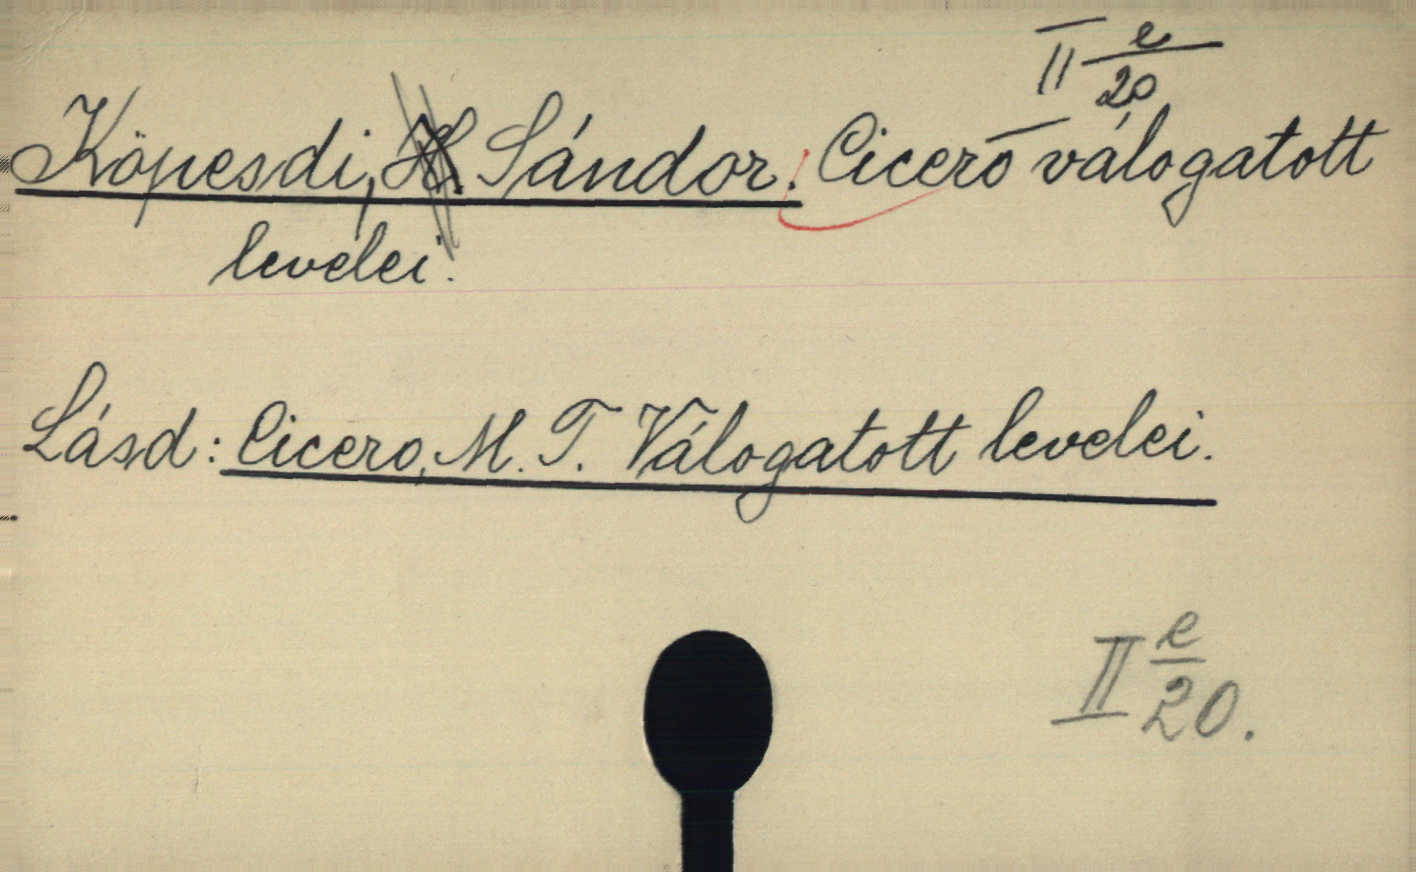 II e/20
Köpesdi, Sándor. Cicero válogatott
levelei.
Lásd: Cicero, M. T. Válogatott levelei.
II e/20.